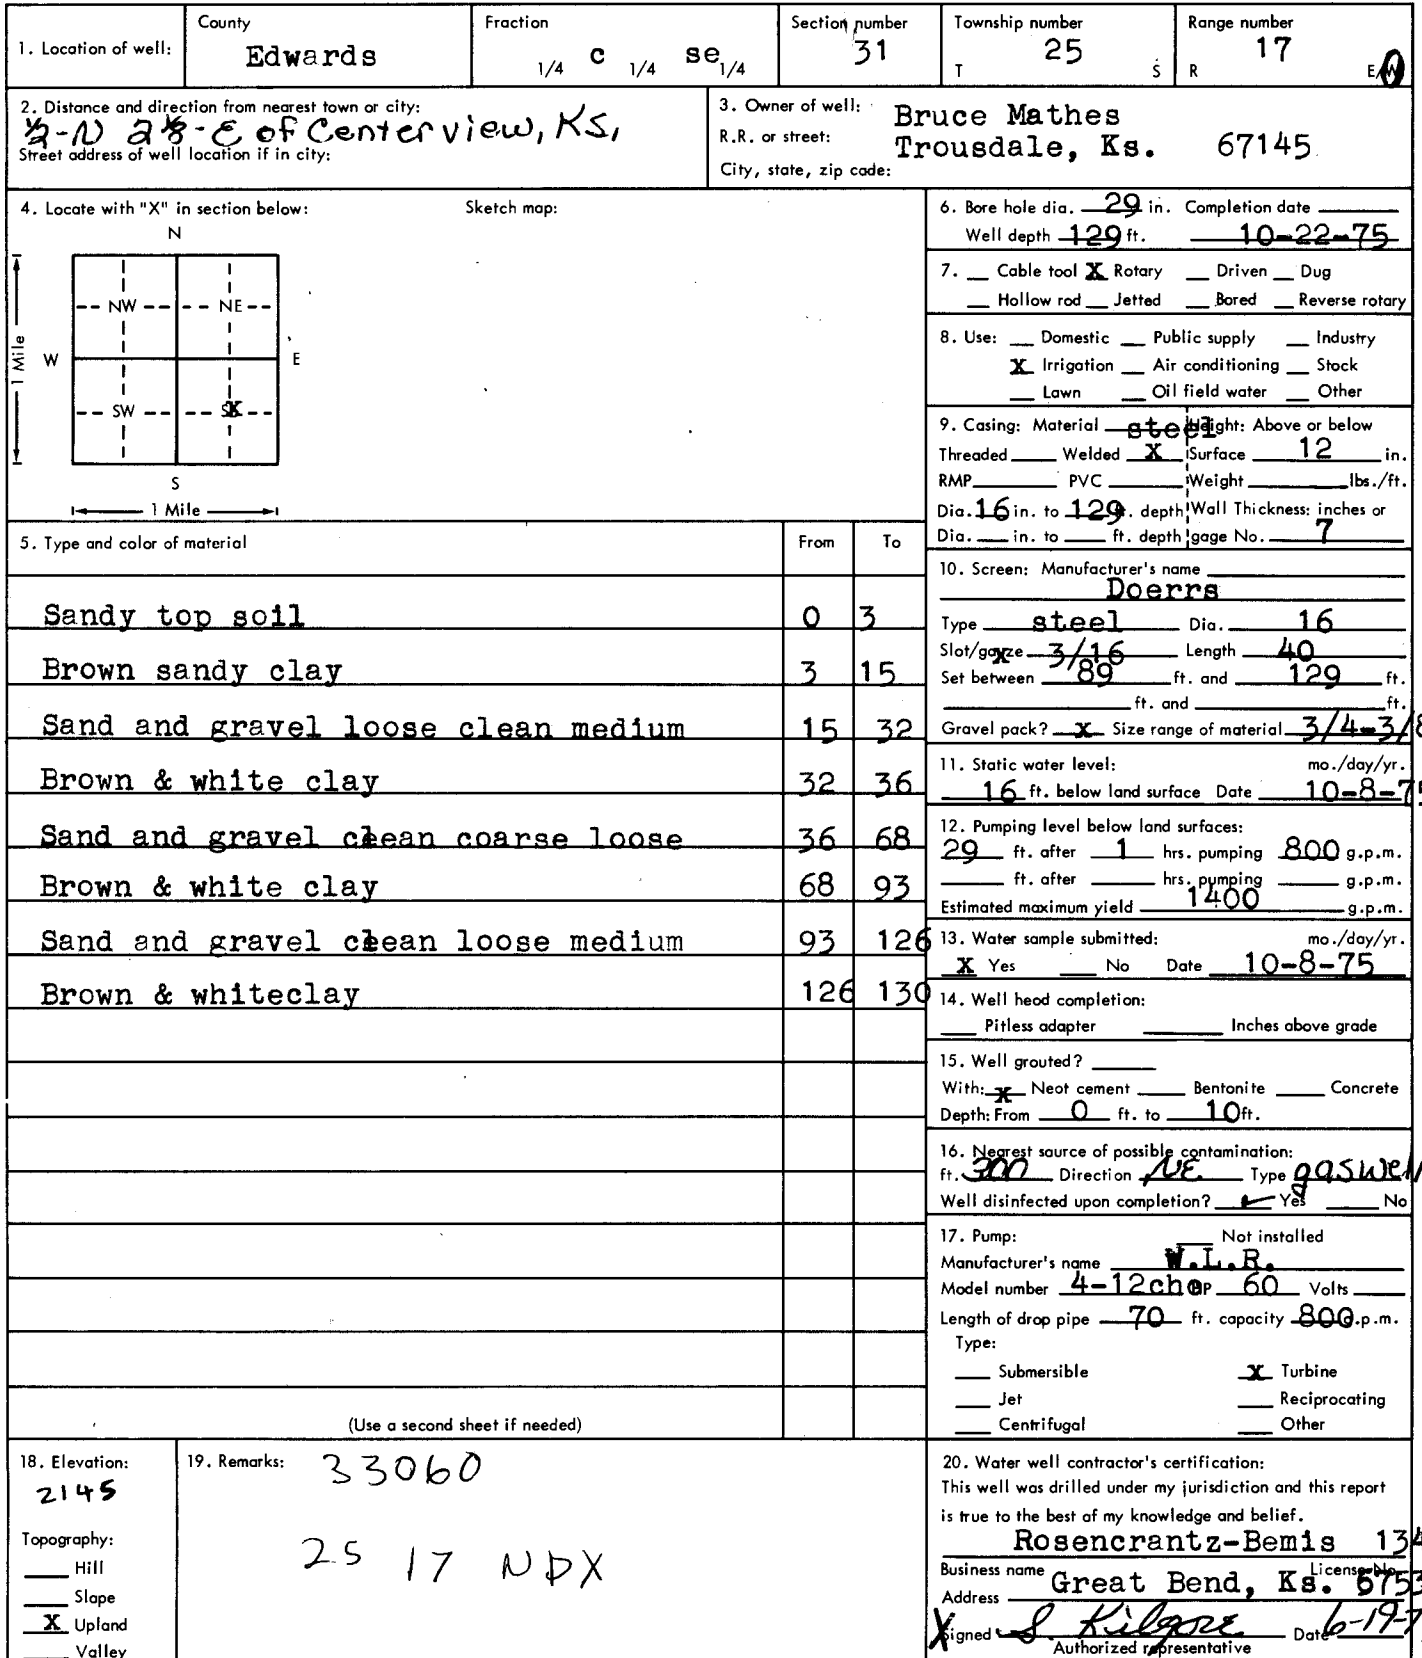 1. Location of well: County Edwards Fraction 1/4 c 1/4 se 1/4 Section number 31 Township number T 25 S Range number R 17 E/W
2. Distance and direction from nearest town or city:
½-N 2⅛-E of Centerview, KS,
Street address of well location if in city:
3. Owner of well: Bruce Mathes
R.R. or street: Trousdale, Ks. 67145
City, state, zip code:
4. Locate with "X" in section below: Sketch map:
N
NW NE
W E
1 Mile
SW SE X
S
1 Mile
5. Type and color of material From To
Sandy top soil 0 3
Brown sandy clay 3 15
Sand and gravel loose clean medium 15 32
Brown & white clay 32 36
Sand and gravel clean coarse loose 36 68
Brown & white clay 68 93
Sand and gravel clean loose medium 93 126
Brown & whiteclay 126 130
(Use a second sheet if needed)
6. Bore hole dia. 29 in. Completion date
Well depth 129 ft. 10-22-75
7. Cable tool X Rotary Driven Dug
Hollow rod Jetted Bored Reverse rotary
8. Use: Domestic Public supply Industry
X Irrigation Air conditioning Stock
Lawn Oil field water Other
9. Casing: Material steel Height: Above or below
Threaded Welded X Surface 12 in.
RMP PVC Weight lbs./ft.
Dia. 16 in. to 129 ft. depth Wall Thickness: inches or
Dia. in. to ft. depth gage No. 7
10. Screen: Manufacturer's name
Doerrs
Type steel Dia. 16
Slot/gauze X 3/16 Length 40
Set between 89 ft. and 129 ft.
ft. and ft.
Gravel pack? X Size range of material 3/4-3/8
11. Static water level: mo./day/yr.
16 ft. below land surface Date 10-8-75
12. Pumping level below land surfaces:
29 ft. after 1 hrs. pumping 800 g.p.m.
ft. after hrs. pumping g.p.m.
Estimated maximum yield 1400 g.p.m.
13. Water sample submitted: mo./day/yr.
X Yes No Date 10-8-75
14. Well head completion:
Pitless adapter Inches above grade
15. Well grouted?
With: X Neat cement Bentonite Concrete
Depth: From 0 ft. to 10 ft.
16. Nearest source of possible contamination:
ft. 300 Direction NE Type gas well
Well disinfected upon completion? ✓ Yes No
17. Pump: Not installed
Manufacturer's name W.L.R.
Model number 4-12cho HP 60 Volts
Length of drop pipe 70 ft. capacity 800 g.p.m.
Type:
Submersible X Turbine
Jet Reciprocating
Centrifugal Other
18. Elevation:
2145
Topography:
Hill
Slope
X Upland
Valley
19. Remarks: 33060
25 17 NDX
20. Water well contractor's certification:
This well was drilled under my jurisdiction and this report
is true to the best of my knowledge and belief.
Rosencrantz-Bemis 134
Business name License No.
Address Great Bend, Ks. 6753
X Signed S. Kilgore Date 6-19-7
Authorized representative